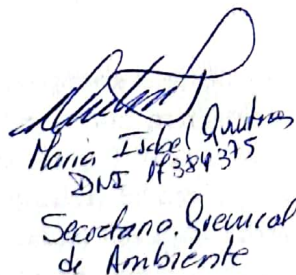 Maria Isabel Quinteros
DNI 17384375
Secretario. Gremial
de Ambiente